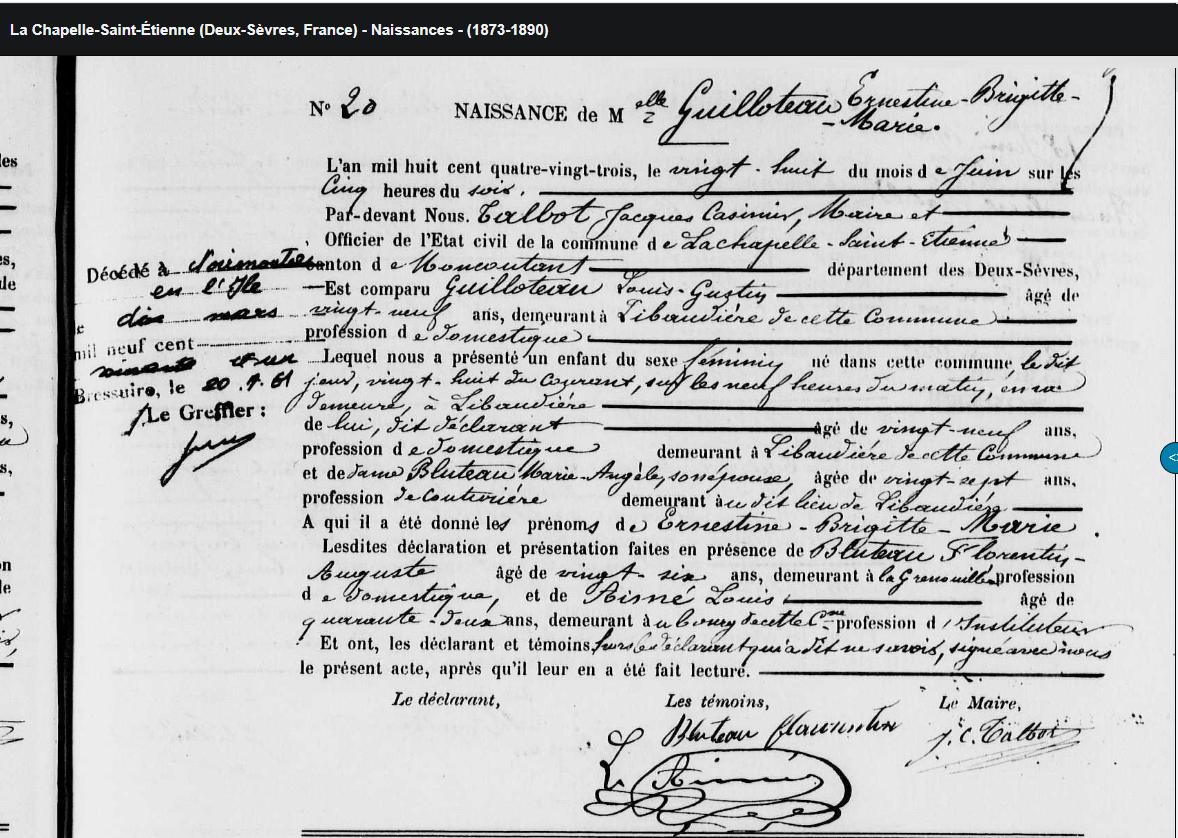 La Chapelle-Saint-Étienne (Deux-Sèvres, France) - Naissances - (1873-1890)
N° 20 NAISSANCE de M elle Guilloteau Ernestine-Brigitte-
-Marie.
L'an mil huit cent quatre-vingt-trois, le vingt-huit du mois de Juin sur les
Cinq heures du soir.
Par-devant Nous. Talbot Jacques Casimir, Maire et
Officier de l'Etat civil de la commune de Lachapelle-Saint-Etienne
canton de Moncoutant département des Deux-Sèvres,
Est comparu Guilloteau Louis-Gustin âgé de
vingt-neuf ans, demeurant à Libaudière de cette Commune
profession de domestique
Lequel nous a présenté un enfant du sexe féminin né dans cette commune, le dit
jour, vingt-huit du courant, sur les neuf heures du matin, en sa
demeure, à Libaudière
de lui, dit déclarant âgé de vingt-neuf ans,
profession de domestique demeurant à Libaudière de cette Commune
et de dame Bluteau Marie-Angèle, son épouse, âgée de vingt-sept ans,
profession de Couturière demeurant au dit lieu de Libaudière
A qui il a été donné les prénoms de Ernestine-Brigitte-Marie
Lesdites déclaration et présentation faites en présence de Bluteau Florentin-
Auguste âgé de vingt six ans, demeurant à la profession
de domestique, et de Aimé Louis âgé de
quarante-deux ans, demeurant au bourg de cette Cne profession d'Instituteur
Et ont, les déclarant et témoins, hors le déclarant qui a dit ne savoir, signé avec nous
le présent acte, après qu'il leur en a été fait lecture.
Le déclarant, Les témoins, Le Maire,
Bluteau Florentin J. C. Talbot
L. Aimé
Décédé à Noirmoutier
en l'Ile
le dix mars
mil neuf cent
soixante et un
Bressuire, le 20.9.61
Le Greffier :